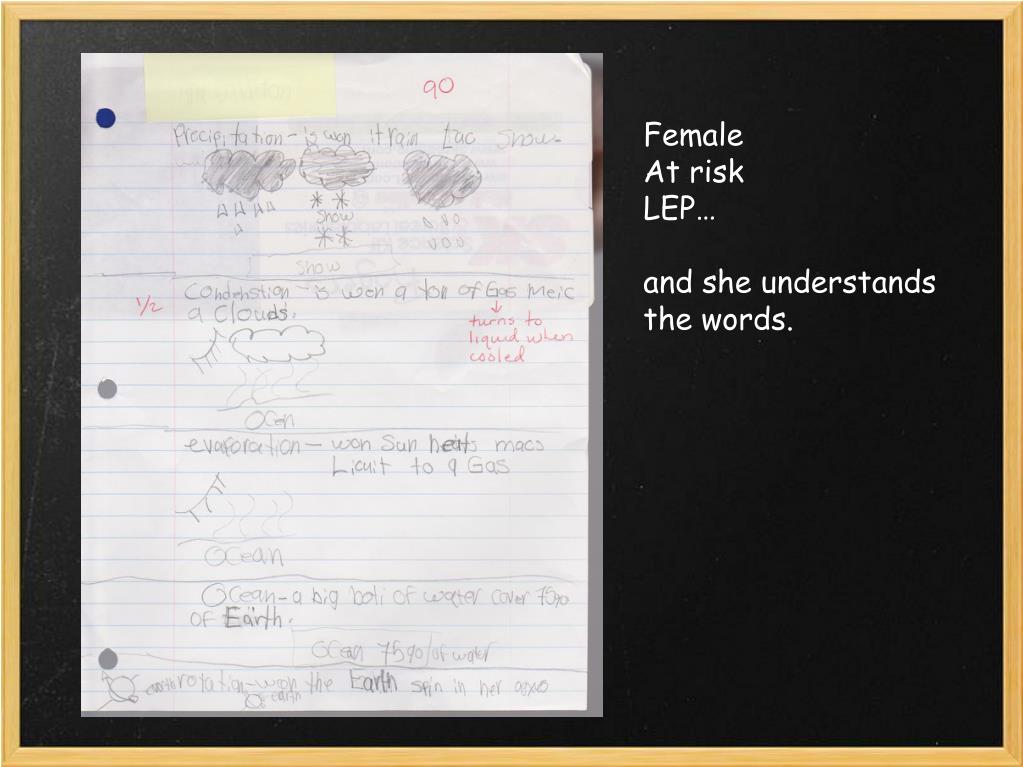 90
Precipitation - is won it rain Lac Show.
Show
Show
1/2
Condenstion - is won a ton of Gas meic
a Clouds.
turns to
liquid when
cooled
Ocen
evaporation - won Sun heats macs
Licuit to a Gas
Ocean
Ocean - a big boti of water cover 75%
of Earth.
Ocen 75% of water
earth rotation - won the Earth spin in her axxo
earth
Female
At risk
LEP...
and she understands
the words.